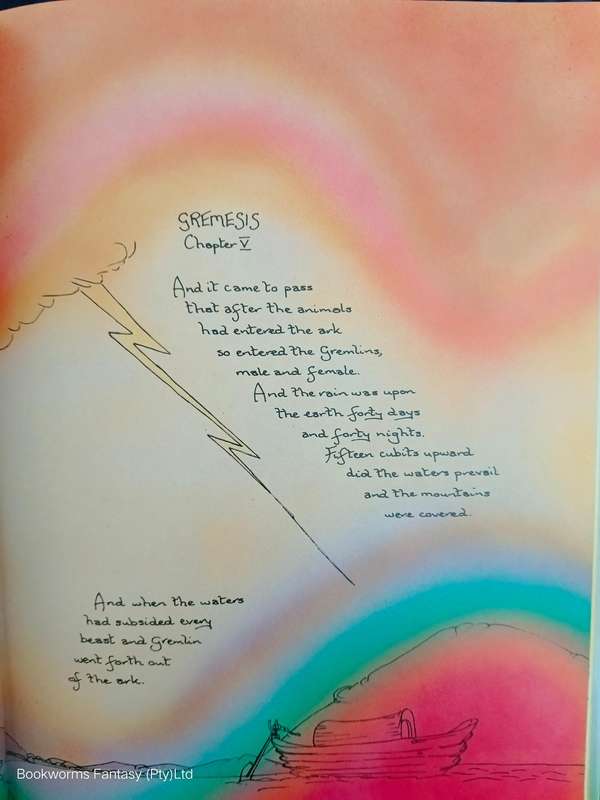 GREMESIS
Chapter V
And it came to pass
that after the animals
had entered the ark
so entered the Gremlins,
male and female.
And the rain was upon
the earth forty days
and forty nights.
Fifteen cubits upward
did the waters prevail
and the mountains
were covered.
And when the waters
had subsided every
beast and Gremlin
went forth out
of the ark.
Bookworms Fantasy (Pty)Ltd